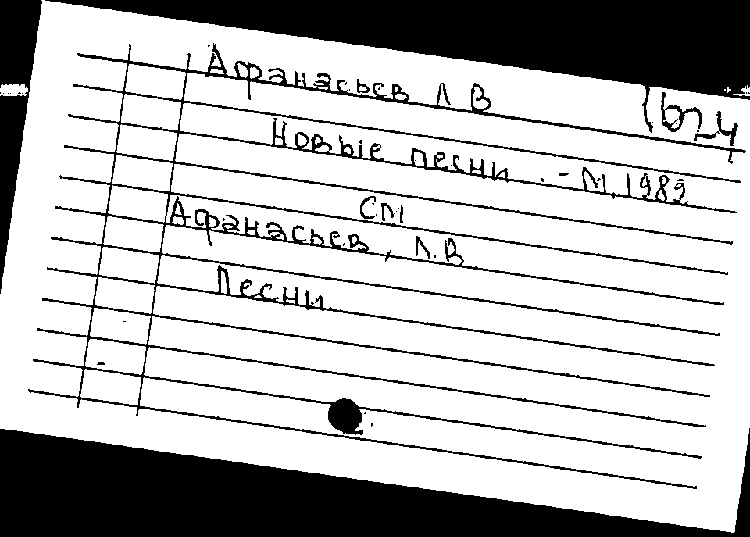 Афанасьев Л В
Новые песни. - М. 1989
см
Афанасьев, Л.В
Песни